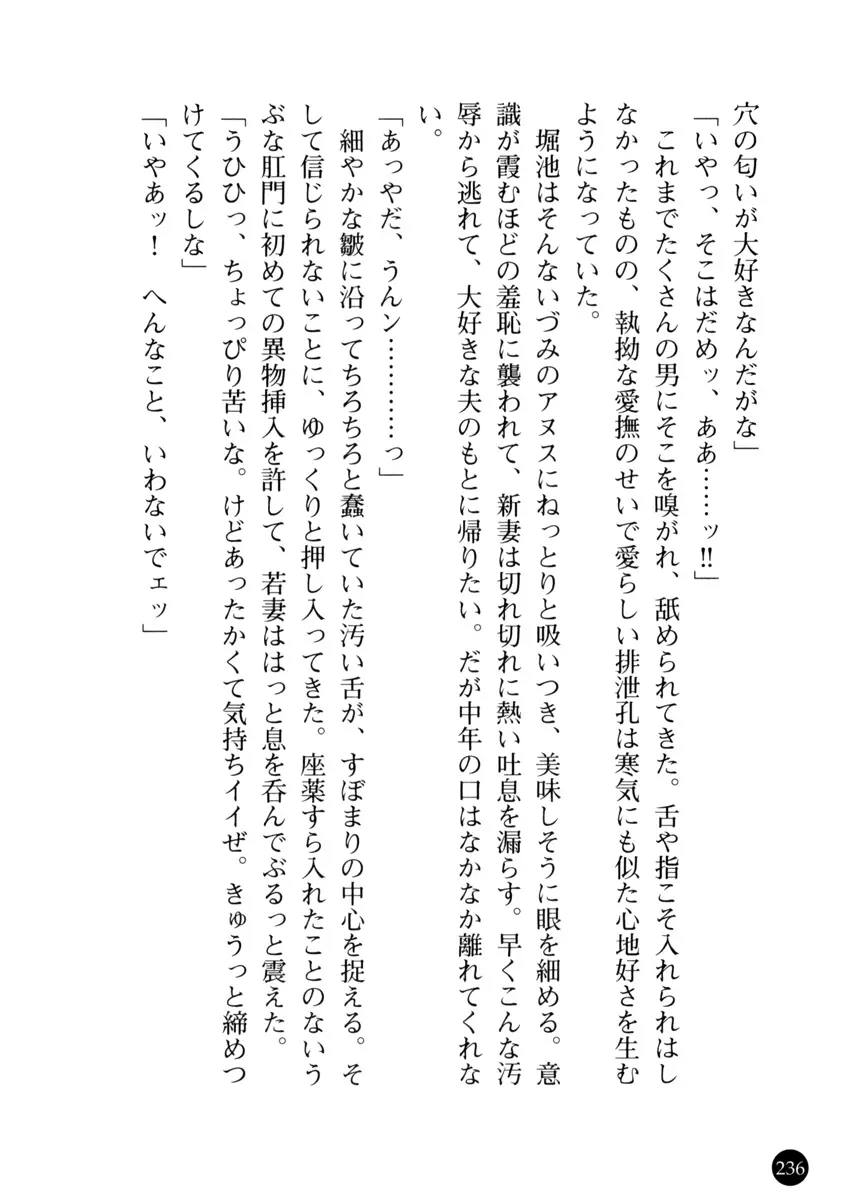 穴の匂いが大好きなんだがな」
「いやっ、そこはだめッ、ああ……ッ!!」
　これまでたくさんの男にそこを嗅がれ、舐められてきた。舌や指こそ入れられはし
なかったものの、執拗な愛撫のせいで愛らしい排泄孔は寒気にも似た心地好さを生む
ようになっていた。
　堀池はそんないづみのアヌスにねっとりと吸いつき、美味しそうに眼を細める。意
識が霞むほどの羞恥に襲われて、新妻は切れ切れに熱い吐息を漏らす。早くこんな汚
辱から逃れて、大好きな夫のもとに帰りたい。だが中年の口はなかなか離れてくれな
い。
「あっやだ、うんン…………っ」
　細やかな皺に沿ってちろちろと蠢いていた汚い舌が、すぼまりの中心を捉える。そ
して信じられないことに、ゆっくりと押し入ってきた。座薬すら入れたことのないう
ぶな肛門に初めての異物挿入を許して、若妻ははっと息を呑んでぶるっと震えた。
「うひひっ、ちょっぴり苦いな。けどあったかくて気持ちイイぜ。きゅうっと締めつ
けてくるしな」
「いやあッ！　へんなこと、いわないでェッ」
236